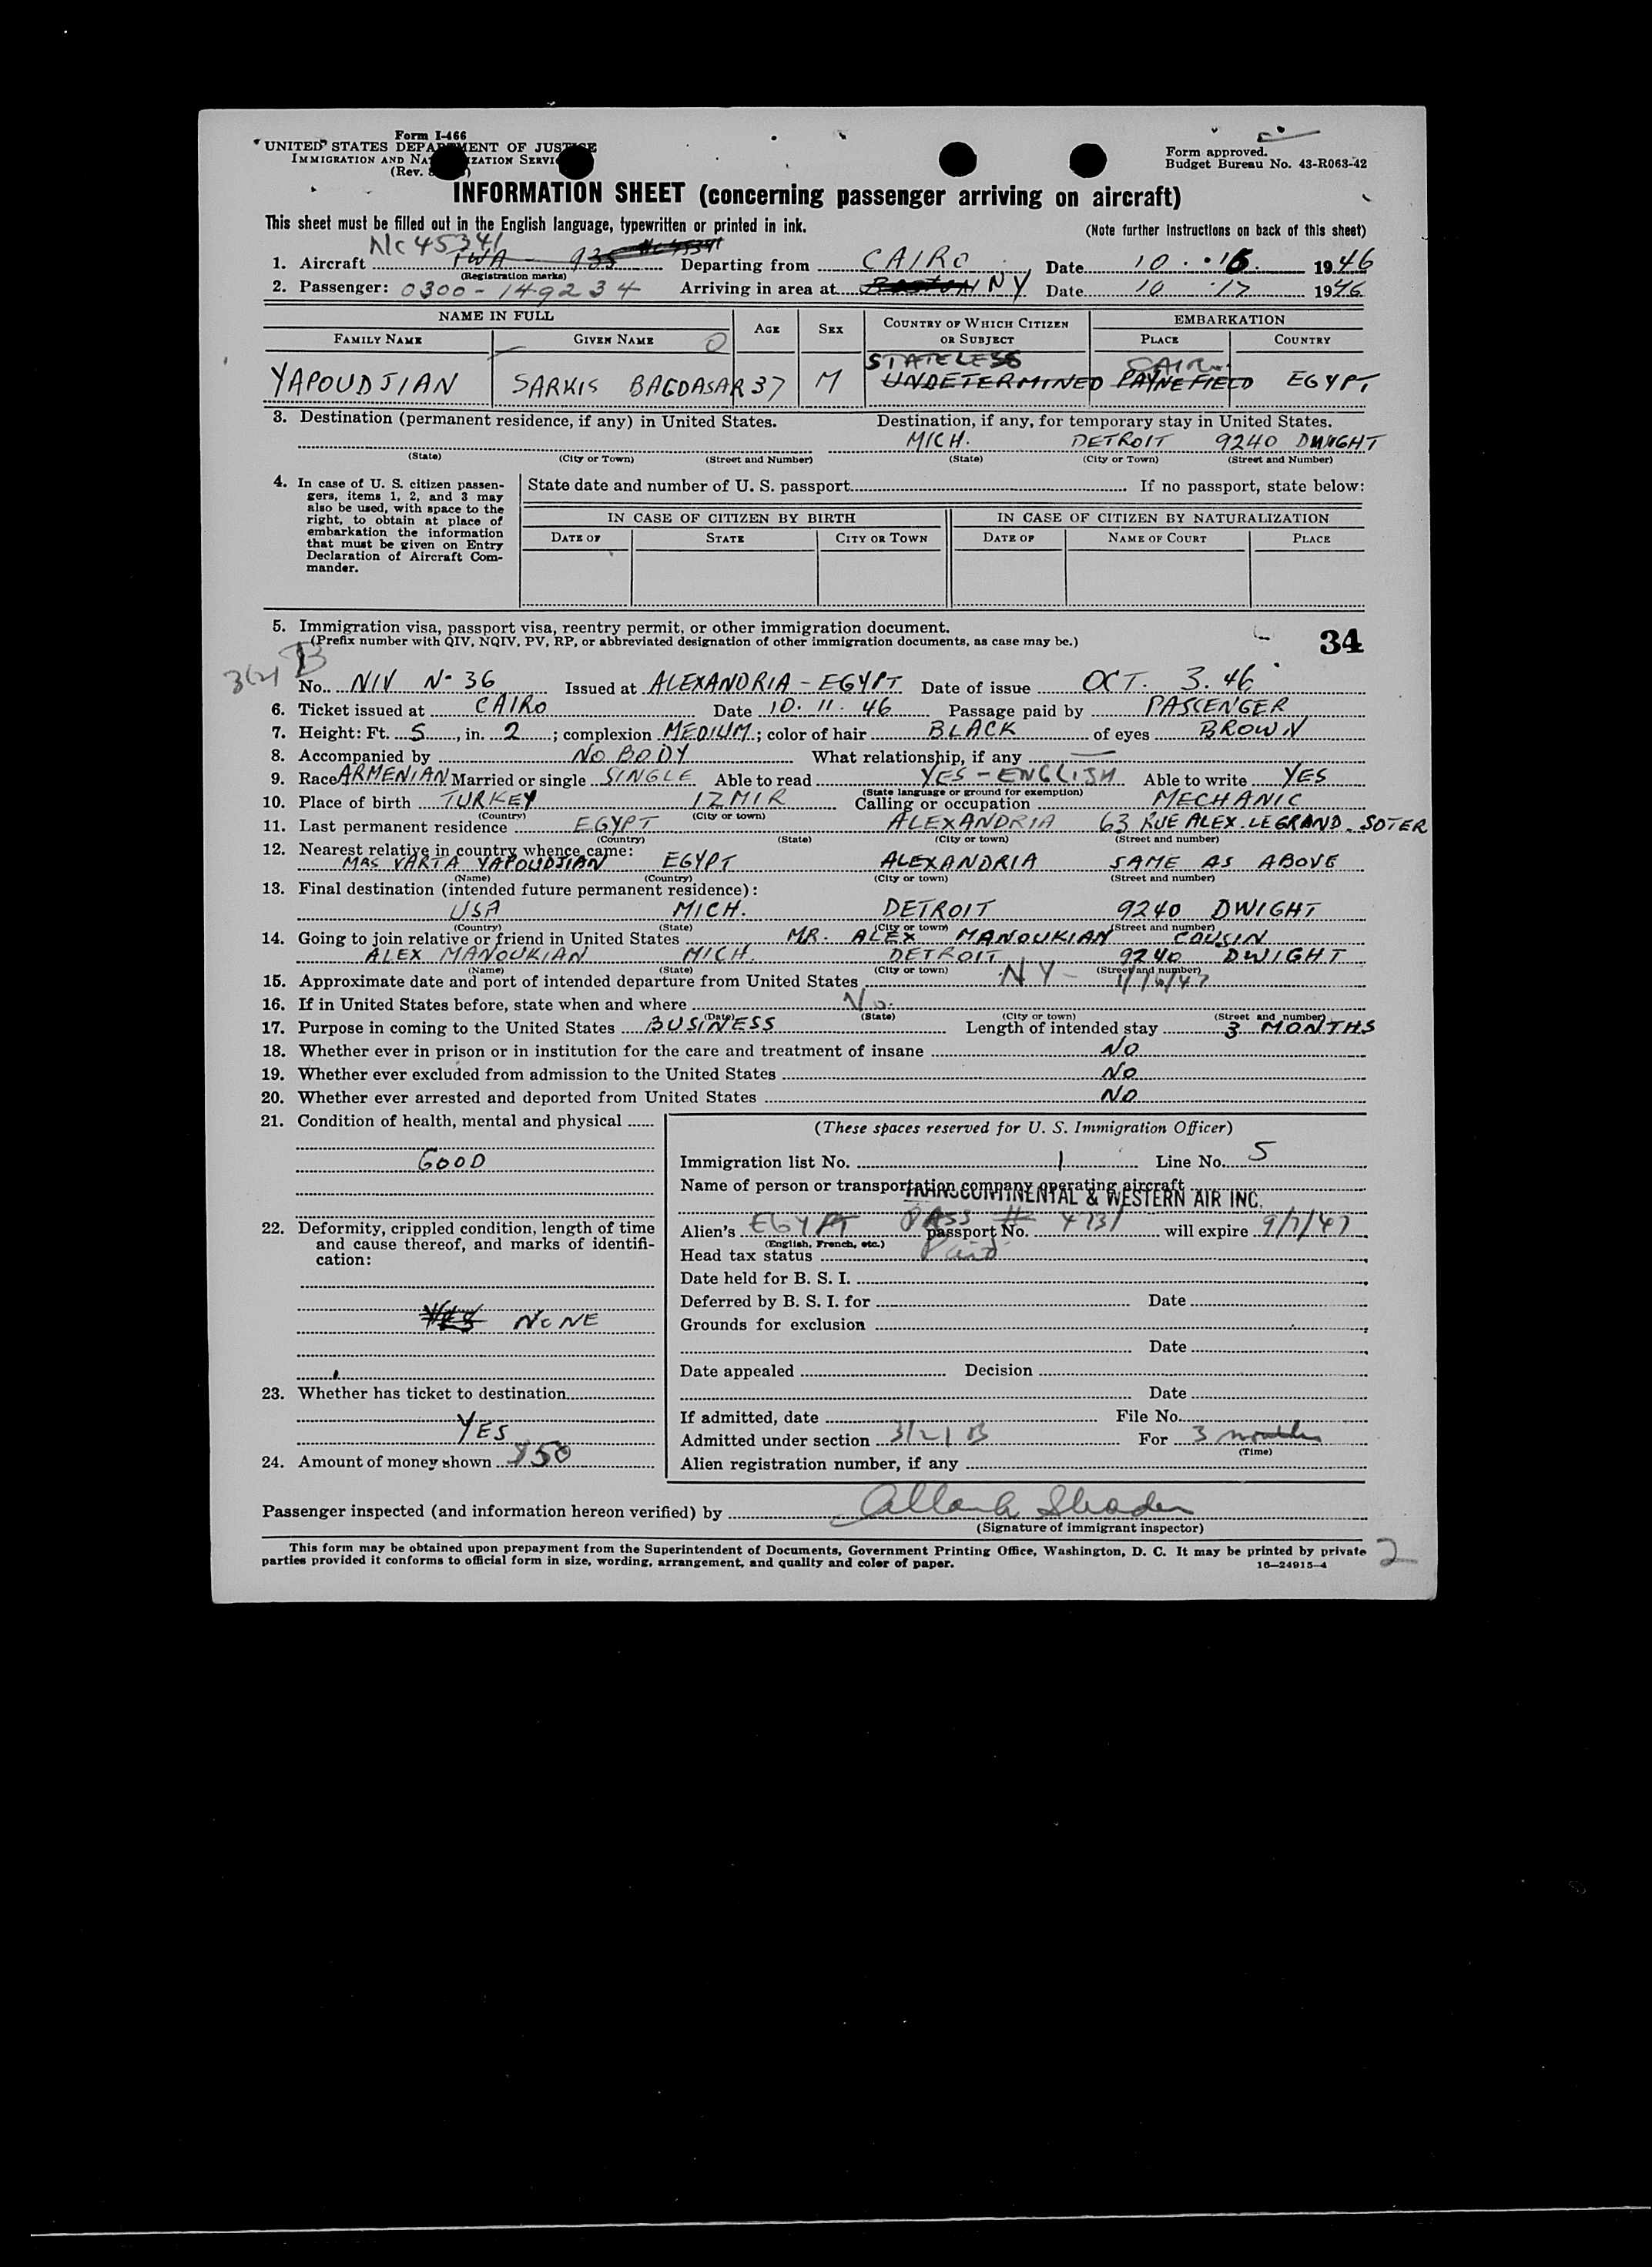 Form I-466
UNITED STATES DEPARTMENT OF JUSTICE
IMMIGRATION AND NATURALIZATION SERVICE
(Rev.
Form approved.
Budget Bureau No. 43-R063-42
INFORMATION SHEET (concerning passenger arriving on aircraft)
This sheet must be filled out in the English language, typewritten or printed in ink.
(Note further instructions on back of this sheet)
NC 45341
1. Aircraft TWA - 935 Departing from CAIRO Date 10 . 16. 1946
(Registration marks)
2. Passenger: 0300-149234 Arriving in area at BOSTON NY Date 10 17 1946
NAME IN FULL AGE SEX COUNTRY OF WHICH CITIZEN OR SUBJECT EMBARKATION
FAMILY NAME GIVEN NAME PLACE COUNTRY
STATELESS
YAPOUDJIAN SARKIS BAGDASAR 37 M UNDETERMINED PAYNEFIELD EGYPT
3. Destination (permanent residence, if any) in United States. Destination, if any, for temporary stay in United States.
MICH. DETROIT 9240 DWIGHT
(State) (City or Town) (Street and Number) (State) (City or Town) (Street and Number)
4. In case of U. S. citizen passengers, items 1, 2, and 3 may also be used, with space to the right, to obtain at place of embarkation the information that must be given on Entry Declaration of Aircraft Commander.
State date and number of U. S. passport If no passport, state below:
IN CASE OF CITIZEN BY BIRTH IN CASE OF CITIZEN BY NATURALIZATION
DATE OF STATE CITY OR TOWN DATE OF NAME OF COURT PLACE
5. Immigration visa, passport visa, reentry permit, or other immigration document.
(Prefix number with QIV, NQIV, PV, RP, or abbreviated designation of other immigration documents, as case may be.)
34
3(2) B
No. NIV No 36 Issued at ALEXANDRIA - EGYPT Date of issue OCT. 3. 46
6. Ticket issued at CAIRO Date 10. 11. 46 Passage paid by PASCENGER
7. Height: Ft. 5, in. 2; complexion MEDIUM; color of hair BLACK of eyes BROWN
8. Accompanied by NO BODY What relationship, if any —
9. Race ARMENIAN Married or single SINGLE Able to read YES - ENGLISH Able to write YES
(State language or ground for exemption)
10. Place of birth TURKEY IZMIR Calling or occupation MECHANIC
(Country) (City or town)
11. Last permanent residence EGYPT ALEXANDRIA 63 RUE ALEX. LE GRAND. SOTER
(Country) (State) (City or town) (Street and number)
12. Nearest relative in country whence came:
MRS VARTA YAPOUDJIAN EGYPT ALEXANDRIA SAME AS ABOVE
(Name) (Country) (City or town) (Street and number)
13. Final destination (intended future permanent residence):
USA MICH. DETROIT 9240 DWIGHT
(Country) (State) (City or town) (Street and number)
14. Going to join relative or friend in United States MR. ALEX MANOUKIAN COUSIN
ALEX MANOUKIAN MICH. DETROIT 9240 DWIGHT
(Name) (State) (City or town) (Street and number)
15. Approximate date and port of intended departure from United States NY - 1/16/47
16. If in United States before, state when and where No.
(Date) (State) (City or town) (Street and number)
17. Purpose in coming to the United States BUSINESS Length of intended stay 3 MONTHS
18. Whether ever in prison or in institution for the care and treatment of insane NO
19. Whether ever excluded from admission to the United States NO
20. Whether ever arrested and deported from United States NO
21. Condition of health, mental and physical
GOOD
22. Deformity, crippled condition, length of time and cause thereof, and marks of identification:
YES NONE
23. Whether has ticket to destination
YES
24. Amount of money shown $50
(These spaces reserved for U. S. Immigration Officer)
Immigration list No. 1 Line No. 5
Name of person or transportation company operating aircraft
TRANSCONTINENTAL & WESTERN AIR INC.
Alien's EGYPT PASS # 4731 passport No. will expire 9/7/47
(English, French, etc.)
Head tax status Paid
Date held for B. S. I.
Deferred by B. S. I. for Date
Grounds for exclusion
Date
Date appealed Decision
Date
If admitted, date File No.
Admitted under section 3/2/B For 3 months
(Time)
Alien registration number, if any
Passenger inspected (and information hereon verified) by
(Signature of immigrant inspector)
This form may be obtained upon prepayment from the Superintendent of Documents, Government Printing Office, Washington, D. C. It may be printed by private
parties provided it conforms to official form in size, wording, arrangement, and quality and color of paper. 16—24915-4
2